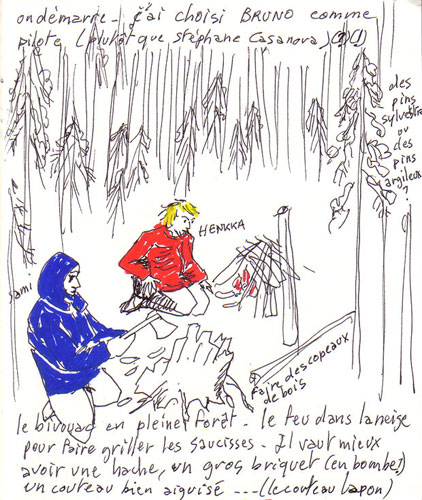 on démarre - j'ai choisi BRUNO comme
pilote (plutôt que stéphane Casanova)
des
pins
sylvestre
ou
des
pins
argileux
?
HENKKA
Sami
faire des copeaux
de bois
le bivouac en pleine forêt - le feu dans la neige
pour faire griller les saucisses - Il vaut mieux
avoir une hache, un gros briquet (en bombe)
un couteau bien aiguisé --- (le couteau Lapon)